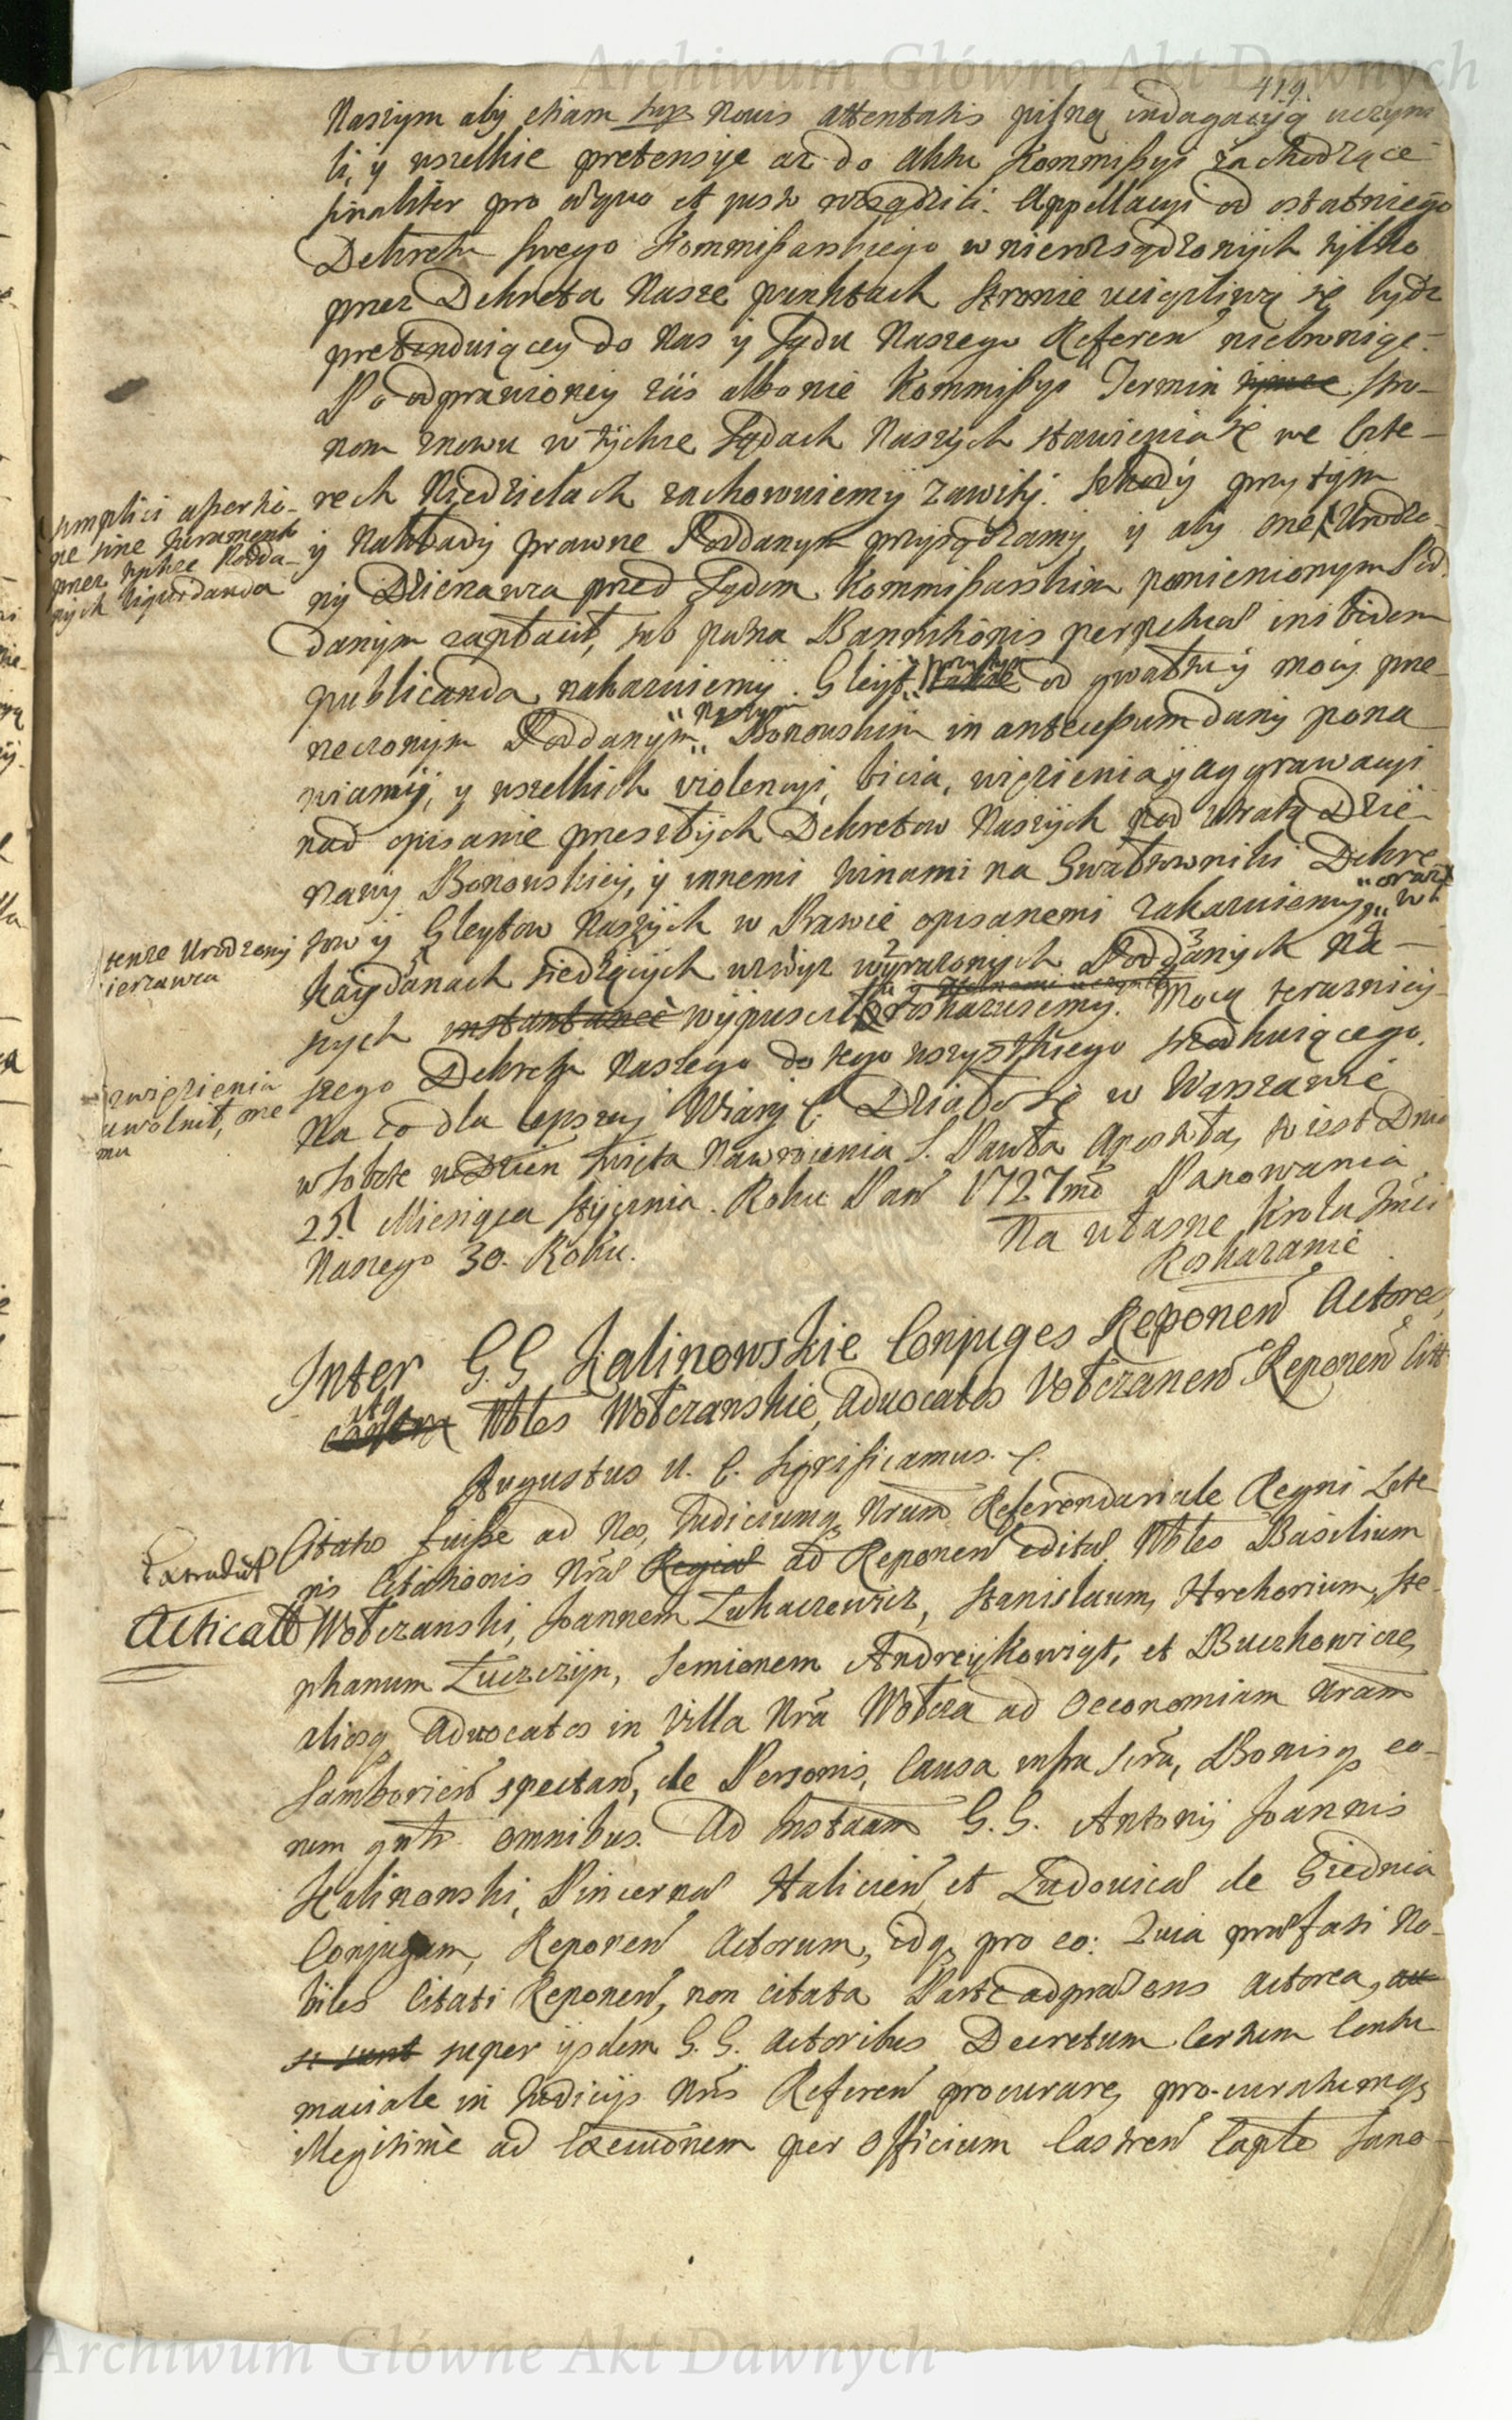 Archiwum Główne Akt Dawnych
419.
Naszym aby etiam sup novis attentatis pilną indagacyą uczyni
li, y wszelkie pretensye aż do aktu Kommissyi zachodzące
finaliter pro aequo et justo rozsądzili. Appellacyi od ostatniego
Dekretu swego Kommissarskiego w nierozsądzonych tylko
przez Dekreta Nasze punktach stronie uciążliwą się bydz
pretenduiącey do Nas y Sądu Naszego Referen niebroniąc.
Po odprawioney zaś albo nie Kommissyi Termin stro-
nom znowu w tychże Sądach Naszych stawienia się we czte-
rech Niedzielach zachowuiemy zawity. Szkody przytym
simplici asserti-
ne sine Jurament
przez tychże Podda-
nych liquidanda
y Nakłady prawne Poddanym przysądzamy, y aby one Urodzo-
ny Dzierzawca przed Sądem Kommissarskim pomienionym Pod
danym zapłacił, sub paena Bannitionis perpetuae inibidem
publicanda, nakazuiemy. Gleyt przytym od gwałtu y mocy prze-
rzeczonym Poddanym Naszym Bonowskim in antecessum dany pona
wiamy, y wszelkich violencyi, bicia, więzienia y aggrawacyi
nad opisanie przeszłych Dekretow Naszych pod utratą Dzie-
rzawy Bonowskiey, y innemi winami na Gwałtowniki Dekre
tow y Gleytow Naszych w Prawie opisanemi zakazuiemy, oraz w
tenże Urodzony
ierzawca
kaydanach siedzących wzwyz wyrazonych Poddanych Na-
szych instantanee wypuscił rozkazuiemy. Mocą terazniey-
z więzienia
uwolnił, me
mu
szego Dekretu Naszego do tego wszystkiego szodkuiącego.
Na co dla lepszey Wiary C. Działo się w Warszawie
w Sobotę w Dzien Swięta Nawrocenia S. Pawła Apostoła, to iest Dnia
25. Miesiąca Stycznia. Roku Pan 1727mo Panowania
Naszego 30. Roku.
Na własne Krola Jmci
Roskazanie
Inter G.G. Kalinowskie Conjuges Reponen Actores,
itq Nbles Wołczanskie, Advocatos Vołczanen Reponen Citt
Augustus II. C. Significamus. C.
Extradit
Acticatt
Citatos fuisse ad Nos, Judiciumq Nrum Referendariale Regni Lite
ris Citationis Nrae Regiae ad Reponen editae Nbles Basilium
Wołczanski, Joannem Łukaczewicz, Stanislaum, Hrehorium, Ste-
phanum Łuczczyn, Semionem Andreykowięt, et Buczkowicze,
aliosq Advocatos in Villa Nra Wołcza ad Oeconomiam Nram
Samborien spectan, de Personis, Causa infra scra, Bonisq eo-
rum gntr omnibus. Ad Instaam G.G. Antonij Joannis
Kalinowski, Pincernae Halicien, et Ludovicae de Giednia
Conjugum, Reponen Actorum, idq pro eo: Quia praefati No-
biles Citati Reponen, non citata Parte adpraesens actorea, ac
si sunt super ijsdem G.G. Actoribus Decretum Certum Contu
maciale in Judicijs Nris Referen procurare, procuratumq
illegitime ad Exeuonem per Officium Castren Captle Sano-
Archiwum Główne Akt Dawnych